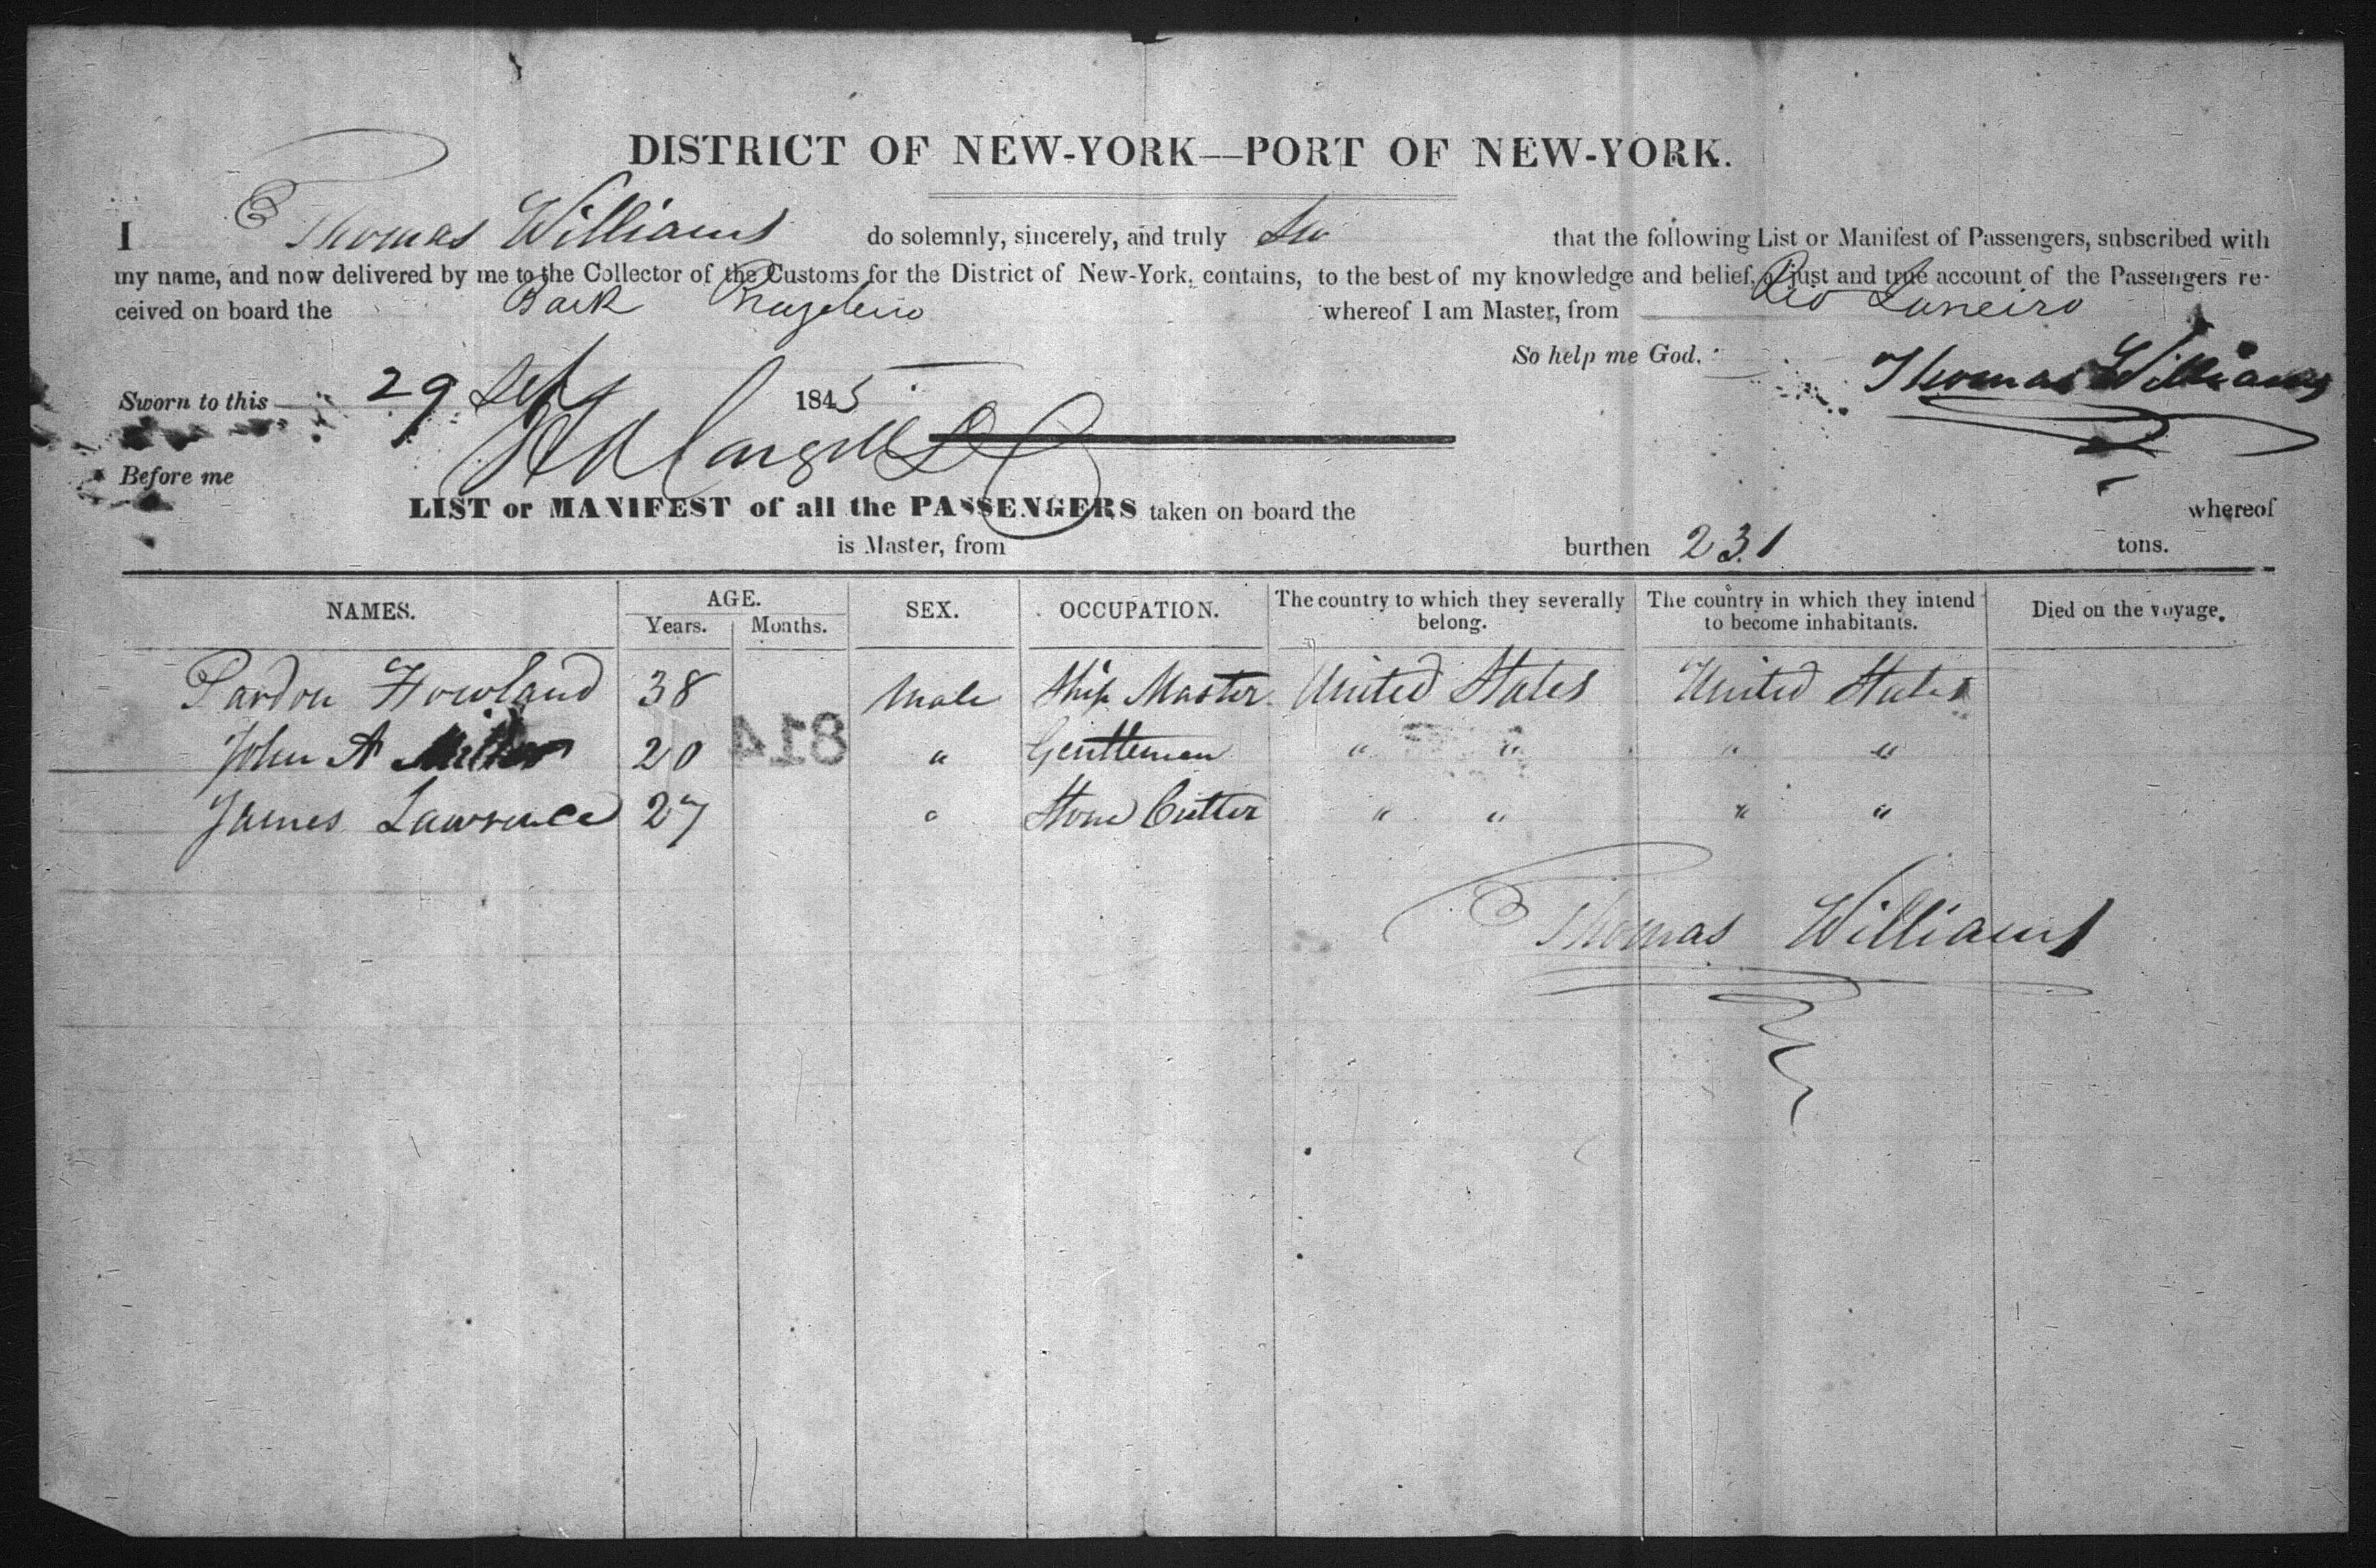 DISTRICT OF NEW-YORK—PORT OF NEW-YORK.
I Thomas Williams do solemnly, sincerely, and truly that the following List or Manifest of Passengers, subscribed with
my name, and now delivered by me to the Collector of the Customs for the District of New-York, contains, to the best of my knowledge and belief, a just and true account of the Passengers re-
ceived on board the Bark whereof I am Master, from Rio Janeiro
So help me God. Thomas Williams
Sworn to this 29 Sep 1845
Before me
LIST or MANIFEST of all the PASSENGERS taken on board the whereof
is Master, from burthen 231 tons.
NAMES. AGE. SEX. OCCUPATION. The country to which they severally belong. The country in which they intend to become inhabitants. Died on the voyage.
Years. Months.
Pardon Howland 38 Male Ship Master United States United States
John A Miller 20 " Gentleman " " " "
814
James Lawrence 27 " Stone Cutter " " " "
Thomas Williams